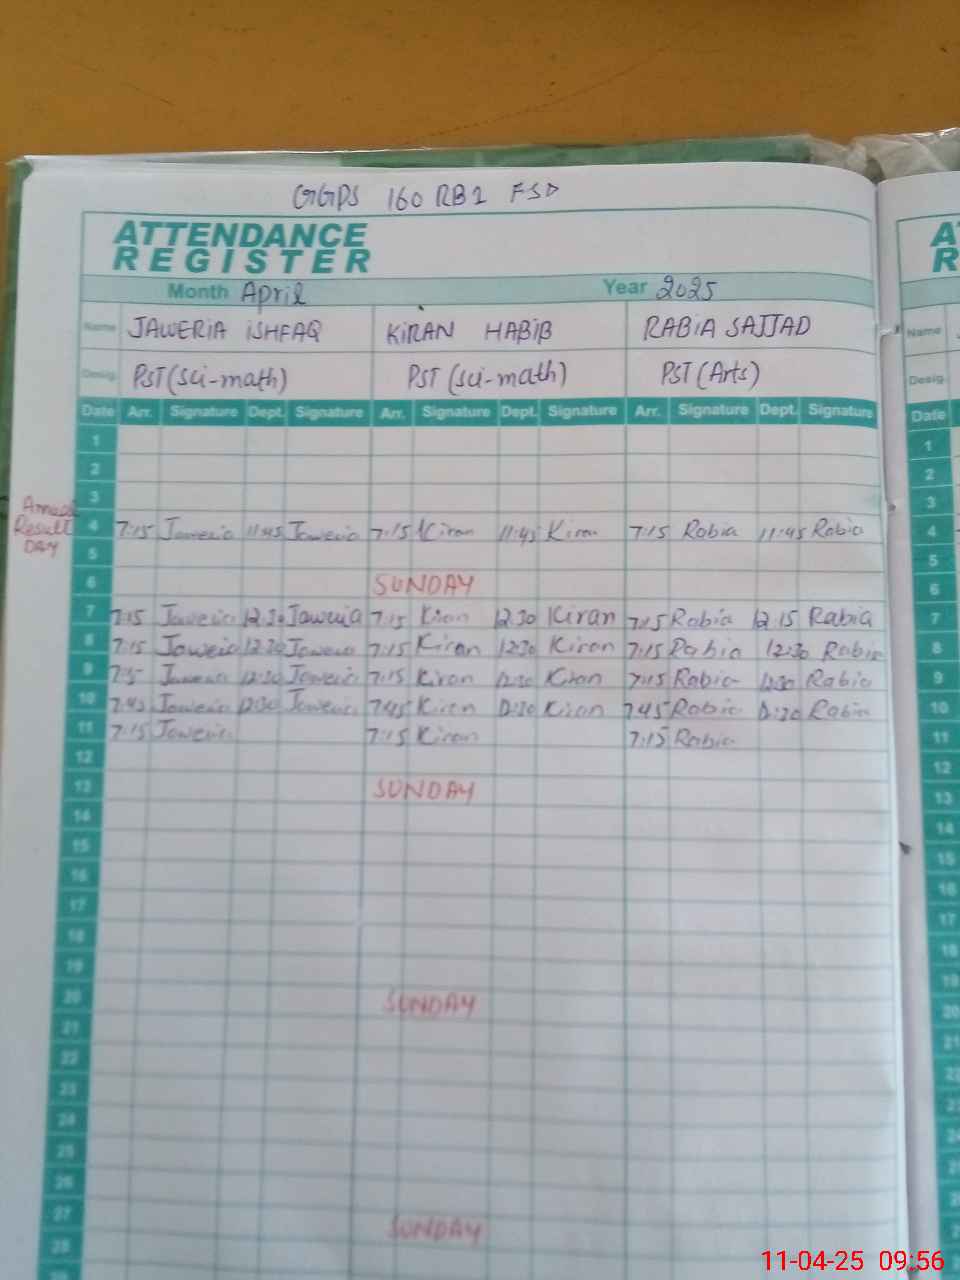 GGPS 160 RB1 FSD
ATTENDANCE
REGISTER
Month April Year 2025
Name JAWERIA ISHFAQ KIRAN HABIB RABIA SAJJAD
Desig. PST (sci-math) PST (sci-math) PST (Arts)
Date Arr. Signature Dept. Signature Arr. Signature Dept. Signature Arr. Signature Dept. Signature
1
2
3
Result DAY
4 7:15 Jaweria 11:45 Jaweria 7:15 Kiran 11:45 Kiran 7:15 Rabia 11:45 Rabia
5
6 SUNDAY
7 7:15 Jaweria 12:30 Jaweria 7:15 Kiran 12:30 Kiran 7:15 Rabia 12:15 Rabia
8 7:15 Jaweria 12:30 Jaweria 7:15 Kiran 12:30 Kiran 7:15 Rabia 12:30 Rabia
9 Jaweria 12:30 Jaweria 7:15 Kiran 12:30 Kiran 7:15 Rabia 12:30 Rabia
10 7:45 Jaweria 12:30 Jaweria 7:45 Kiran Kiran 7:45 Rabia Rabia
11 7:15 Jaweria 7:15 Kiran 7:15 Rabia
12
13 SUNDAY
14
15
16
17
18
19
20 SUNDAY
21
22
23
24
25
26
27 SUNDAY
28
Name
Desig.
Date
1
2
3
4
5
6
7
8
9
10
11
12
13
14
15
16
17
18
19
20
11-04-25 09:56